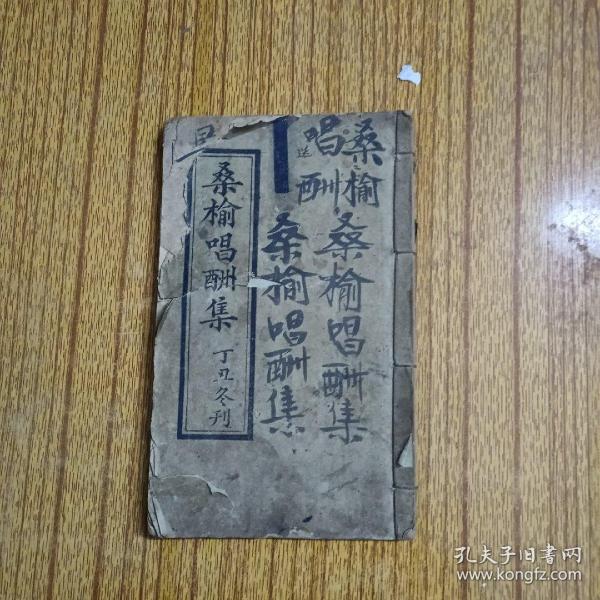 桑榆
唱酬
送
桑榆唱酬集
桑榆唱酬集
桑榆唱酬集
丁丑冬刊
孔夫子旧书网
www.kongfz.com